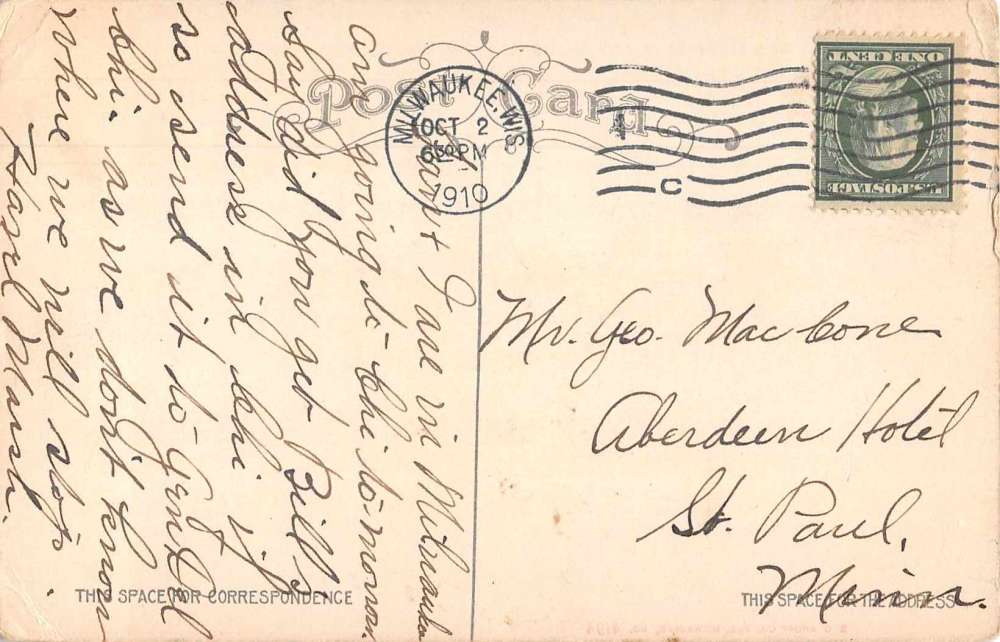 Post Card
MILWAUKEE, WIS.
OCT 2
630 PM
1910
C
U.S. POSTAGE
ONE CENT
Mr. Geo. MacCone
Aberdeen Hotel
St. Paul,
Minn.
+ I are in Milwaukee
am going to Chi to-morrow.
Say did you get Bill's
address in Chi if
so send it to Gen Del
Chi. as we don't know
where we will stop.
Marsh.
THIS SPACE FOR CORRESPONDENCE
THIS SPACE FOR THE ADDRESS